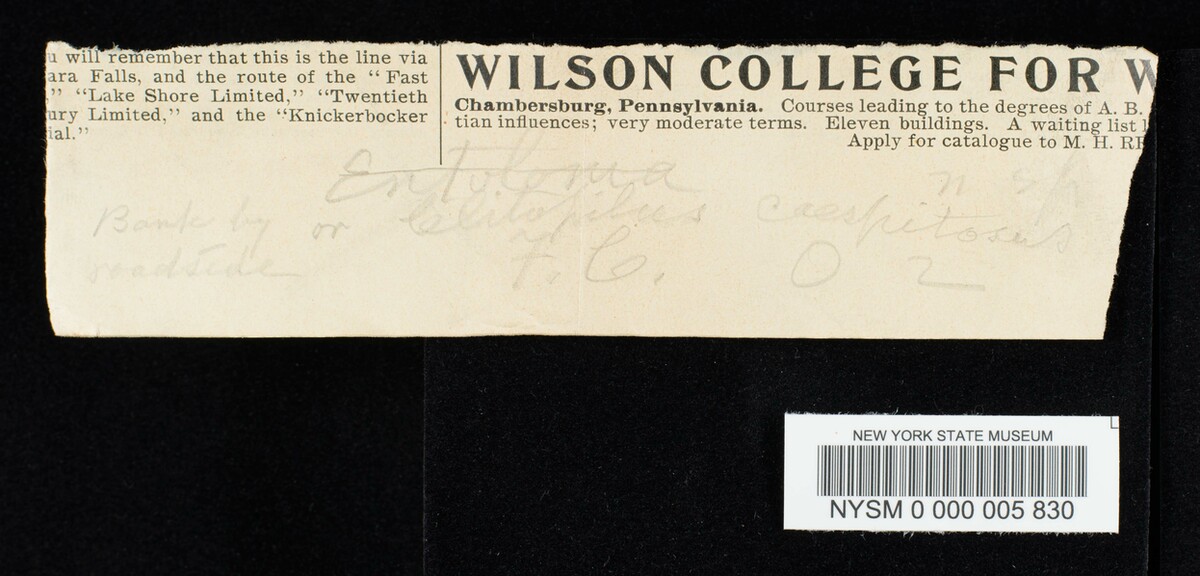 u will remember that this is the line via
ara Falls, and the route of the “Fast
,” “Lake Shore Limited,” “Twentieth
ury Limited,” and the “Knickerbocker
ial.”
WILSON COLLEGE FOR W
Chambersburg, Pennsylvania. Courses leading to the degrees of A. B.
tian influences; very moderate terms. Eleven buildings. A waiting list
Apply for catalogue to M. H. RE
Entoloma n sp
Bank by or Clitopilus caespitosus
roadside F. C. O 2
NEW YORK STATE MUSEUM
NYSM 0 000 005 830